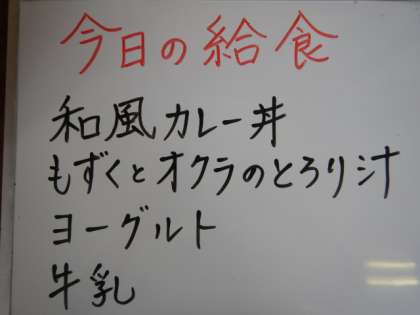 今日の給食
和風カレー丼
もずくとオクラのとろり汁
ヨーグルト
牛乳